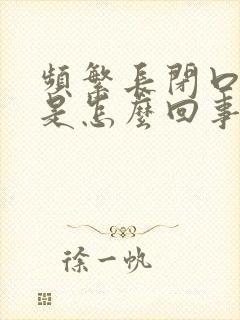 頻繁長閉口
是怎麼回事
徐一帆